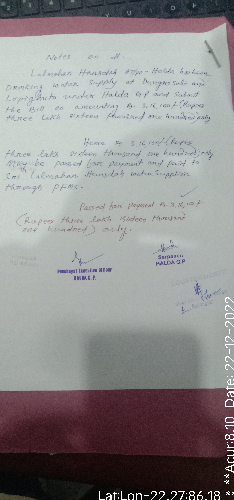 Notes on
Lalmohan Hansdah
Drinking water Supply at
under Halda GP and Submit
the Bill on amounting Rs 3,16,100/- (Rupees
three lakh sixteen thousand one hundred only
Hence Rs 3,16,100/- (Rupees
three lakh sixteen thousand one hundred) only
may be passed for payment and paid to
Sri Lalmohan Hansdah water Supplier
through PFMS.
Passed for payment Rs 3,16,100/-
(Rupees three lakh sixteen thousand
one hundred) only.
Panchayat Executive Officer
HALDA G.P.
Sarpanch
HALDA G.P.
Lat:Lon-22.27:86.18 * **Acur:8.10 Date: 22-12-2022